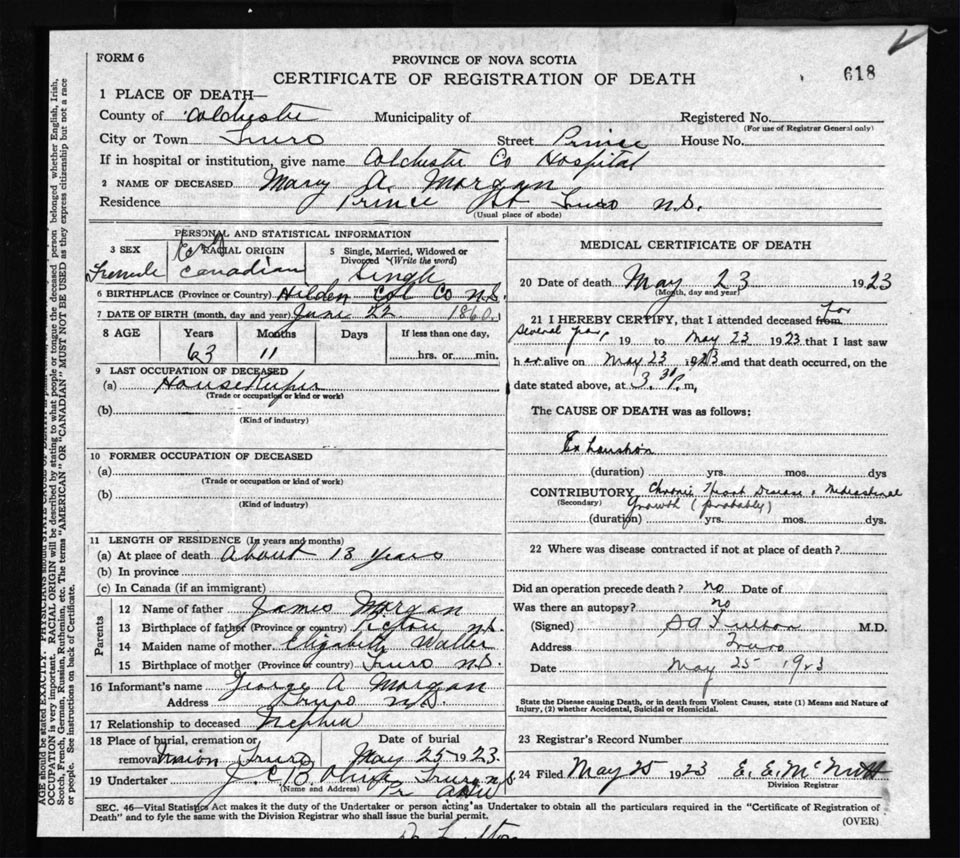 FORM 6
PROVINCE OF NOVA SCOTIA
CERTIFICATE OF REGISTRATION OF DEATH
618
1 PLACE OF DEATH—
County of Colchester Municipality of Registered No.
(For use of Registrar General only)
City or Town Truro Street Prince House No.
If in hospital or institution, give name Colchester Co Hospital
2 NAME OF DECEASED Mary A. Morgan
Residence Prince St Truro N.S.
(Usual place of abode)
PERSONAL AND STATISTICAL INFORMATION
3 SEX RACIAL ORIGIN 5 Single, Married, Widowed or
Divorced (Write the word)
Female Canadian Single
6 BIRTHPLACE (Province or Country) Hilden Col Co N.S.
7 DATE OF BIRTH (month, day and year) June 22 1860
8 AGE Years Months Days If less than one day,
63 11 hrs. or min.
9 LAST OCCUPATION OF DECEASED
(a) Housekeeper
(Trade or occupation or kind or work)
(b)
(Kind of industry)
10 FORMER OCCUPATION OF DECEASED
(a)
(Trade or occupation or kind of work)
(b)
(Kind of industry)
11 LENGTH OF RESIDENCE (In years and months)
(a) At place of death About 13 years
(b) In province
(c) In Canada (if an immigrant)
Parents
12 Name of father James Morgan
13 Birthplace of father (Province or country) Pictou N.S.
14 Maiden name of mother Elizabeth Waller
15 Birthplace of mother (Province or country) Truro N.S.
16 Informant's name George A Morgan
Address Truro N.S.
17 Relationship to deceased Nephew
18 Place of burial, cremation or Date of burial
removal Union Truro May 25 1923.
19 Undertaker J. C. B. Truro N.S.
(Name and Address)
MEDICAL CERTIFICATE OF DEATH
20 Date of death May 23 1923
(Month, day and year)
21 I HEREBY CERTIFY, that I attended deceased from for
several years, 19 to May 23 1923 that I last saw
her alive on May 23 1923 and that death occurred, on the
date stated above, at 3.30 P. m,
The CAUSE OF DEATH was as follows:
Exhaustion
(duration) yrs. mos. dys
CONTRIBUTORY Chronic Heart Disease & Mediastinal
(Secondary) Growth (probably)
(duration) yrs. mos. dys.
22 Where was disease contracted if not at place of death?
Did an operation precede death? no Date of
Was there an autopsy? no
(Signed) Fulton M.D.
Address Truro
Date May 25 1923
State the Disease causing Death, or in death from Violent Causes, state (1) Means and Nature of
Injury, (2) whether Accidental, Suicidal or Homicidal.
23 Registrar's Record Number
24 Filed May 25 1923 E. E. McNutt
Division Registrar
SEC. 46—Vital Statistics Act makes it the duty of the Undertaker or person acting as Undertaker to obtain all the particulars required in the "Certificate of Registration of
Death" and to fyle the same with the Division Registrar who shall issue the burial permit.
(OVER)
AGE should be stated EXACTLY. PHYSICIANS should STATE CAUSE OF DEATH
OCCUPATION is very important. RACIAL ORIGIN will be described by stating to what people or tongue the deceased person belonged whether English, Irish,
Scotch, French, German, Russian, Ruthenian, etc. The terms "AMERICAN" OR "CANADIAN" MUST NOT BE USED as they express citizenship but not a race
or people. See instructions on back of Certificate.